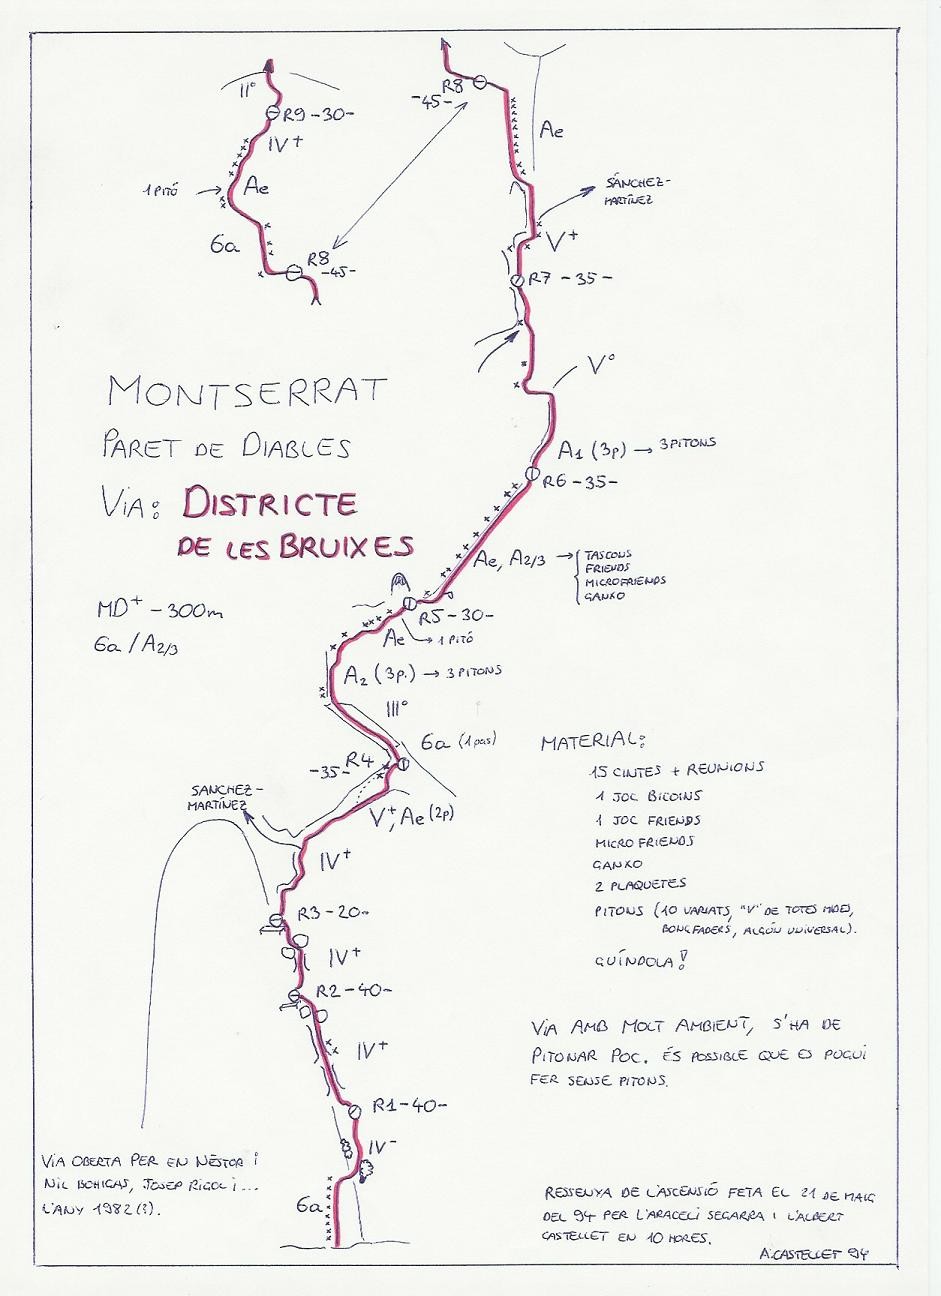 II°
R9 -30-
IV+
1 PITÓ
Ae
6a
R8
-45-
R8
-45-
Ae
SÁNCHEZ-
MARTÍNEZ
V+
R7 -35-
V°
A1 (3p) → 3 PITONS
R6 -35-
MONTSERRAT
PARET DE DIABLES
VIA: DISTRICTE
DE LES BRUIXES
MD+ - 300m
6a / A2/3
Ae, A2/3 →
TASCONS
FRIENDS
MICROFRIENDS
GANXO
R5 -30-
Ae
→ 1 PITÓ
A2 (3p.) → 3 PITONS
III°
6a (1 pas)
R4
-35-
SANCHEZ-
MARTÍNEZ
V+, Ae (2p)
IV+
R3 -20-
IV+
R2 -40-
IV+
R1 -40-
IV-
6a
MATERIAL:
15 CINTES + REUNIONS
1 JOC BICOINS
1 JOC FRIENDS
MICRO FRIENDS
GANXO
2 PLAQUETES
PITONS (10 VARIATS, "V" DE TOTES MIDES,
BONGFADERS, ALGÚN UNIVERSAL).
GUÍNDOLA!
VIA AMB MOLT AMBIENT, S'HA DE
PITONAR POC. ÉS POSSIBLE QUE ES PUGUI
FER SENSE PITONS.
VIA OBERTA PER EN NÈSTOR I
NIL BOHIGAS, JOSEP RIGOL I...
L'ANY 1982(?).
RESSENYA DE L'ASCENSIÓ FETA EL 21 DE MAIG
DEL 94 PER L'ARACELI SEGARRA I L'ALBERT
CASTELLET EN 10 HORES.
A.CASTELLET 94